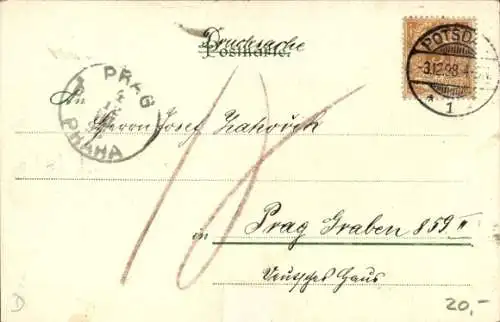 Drucksache
Postkarte.
POTSDA
-3.12.98.4-
* 1
PRAG
PRAHA
An
Herrn Josef Zahořik
18
in Prag Graben 859 II
Deutsches Haus
D
20,-